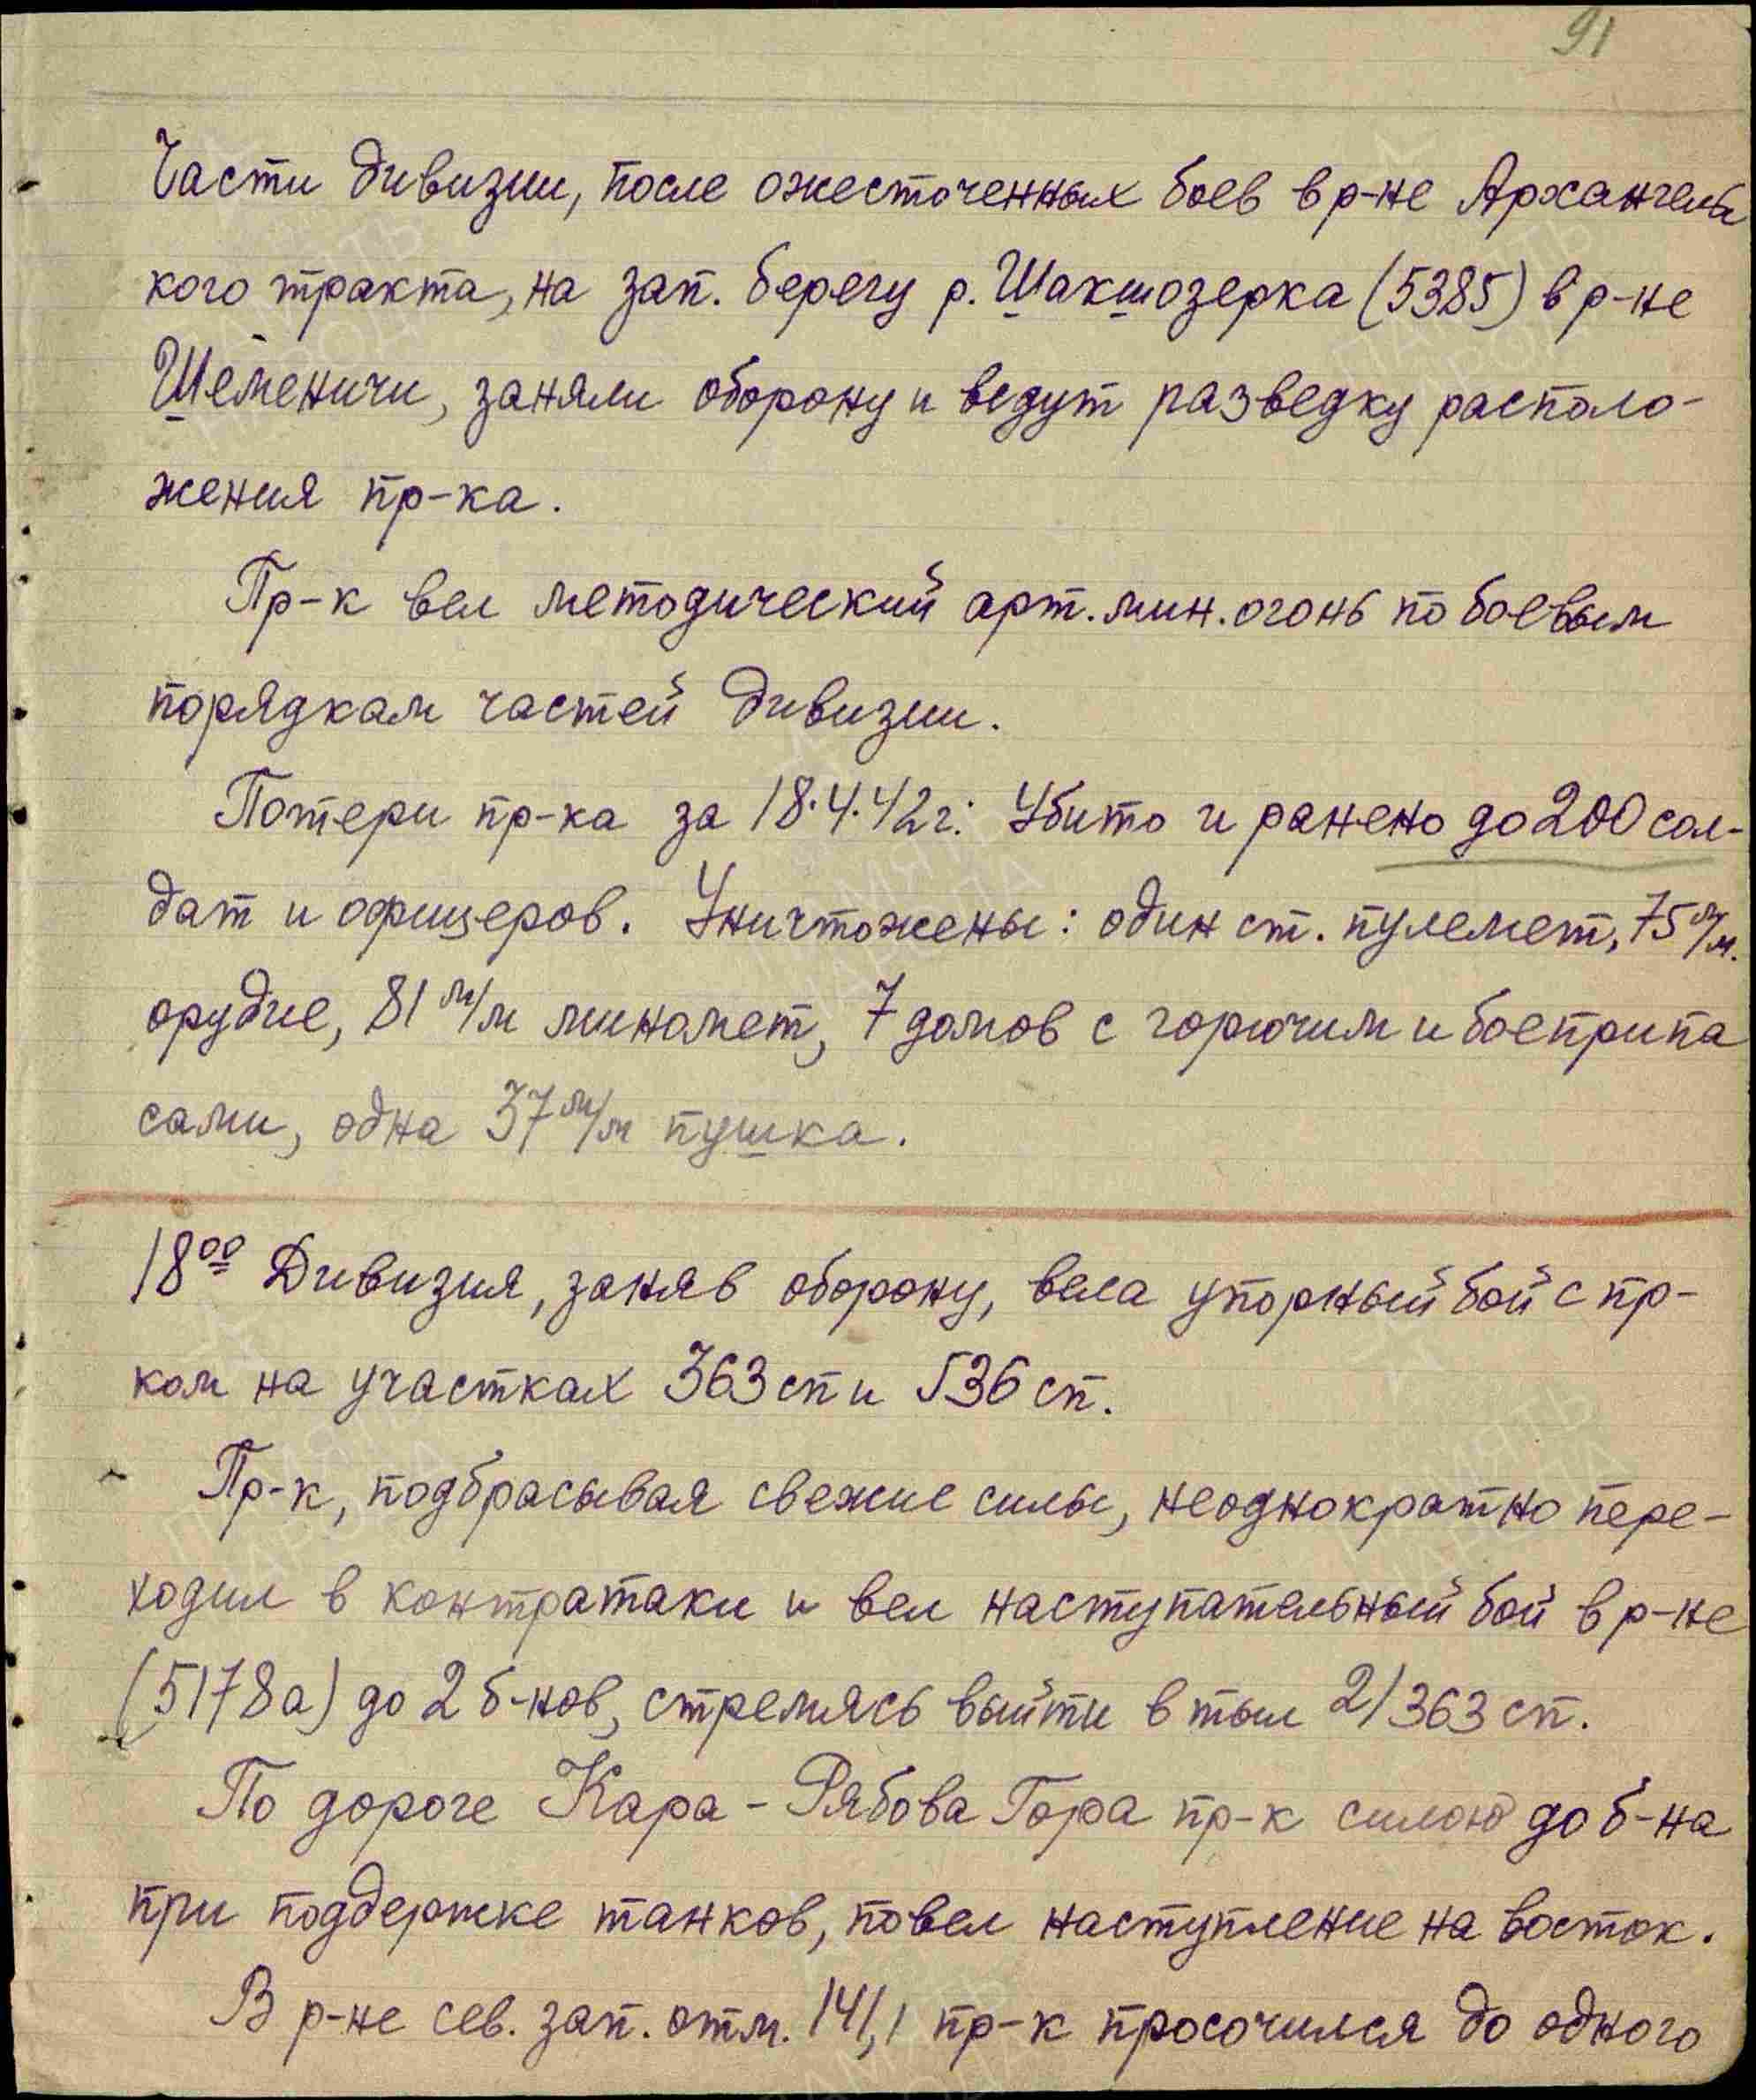 91
Части дивизии, после ожесточенных боев в р-не Архангельс
кого тракта, на зап. берегу р. Шакшозерка (5385) в р-не
Шеменичи, заняли оборону и ведут разведку располо-
жения пр-ка.
Пр-к вел методический арт. мин. огонь по боевым
порядкам частей дивизии.
Потери пр-ка за 18.4.42г: Убито и ранено до 200 сол-
дат и офицеров. Уничтожены: один ст. пулемет, 75 м/м.
орудие, 81 м/м миномет, 7 домов с горючим и боеприпа
сами, одна 37 м/м пушка.
18⁰⁰ Дивизия, заняв оборону, вела упорный бой с пр-
ком на участках 363 сп и 536 сп.
Пр-к, подбрасывая свежие силы, неоднократно пере-
ходил в контратаки и вел наступательный бой в р-не
(5178а) до 2 б-нов, стремясь выйти в тыл 2/363 сп.
По дороге Кара - Рябова Гора пр-к силою до б-на
при поддержке танков, повел наступление на восток.
В р-не сев. зап. отм. 141,1 пр-к просочился до одного